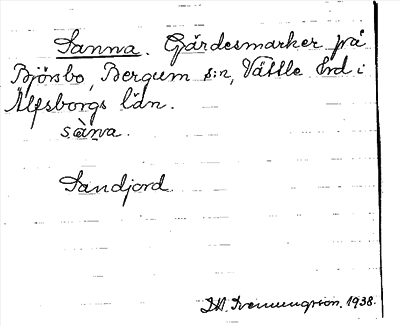 Sanna. Gärdesmarker på
Björsbo, Bergum s:n, Vättle hd i
Älfsborgs län.
sàǹa.
Sandjord
1938.